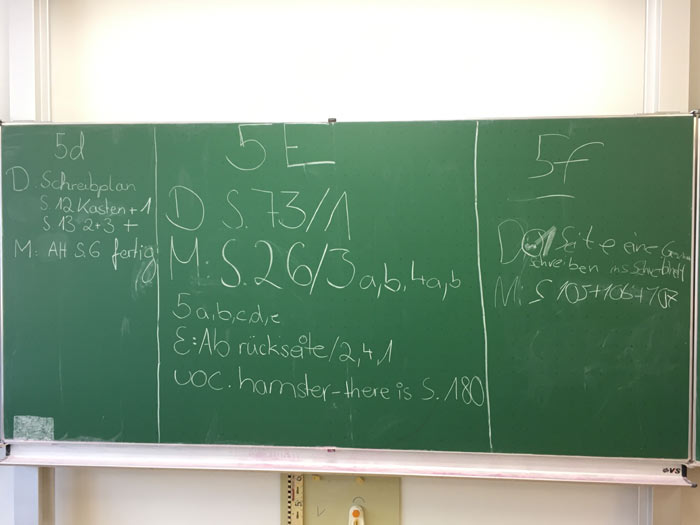 5d
D. Schreibplan
S. 12 Kasten + 1
S. 13 2+3 +
M: AH S.6 fertig
5E
D S. 73/1
M: S. 26/3 a,b, 4a,b
5 a,b,c,d,e
E: Ab rückseite/2,4,1
voc. hamster-there is S. 180
5f
D 1 Seite eine
schreiben ins
M: S 105+106+107
OVS